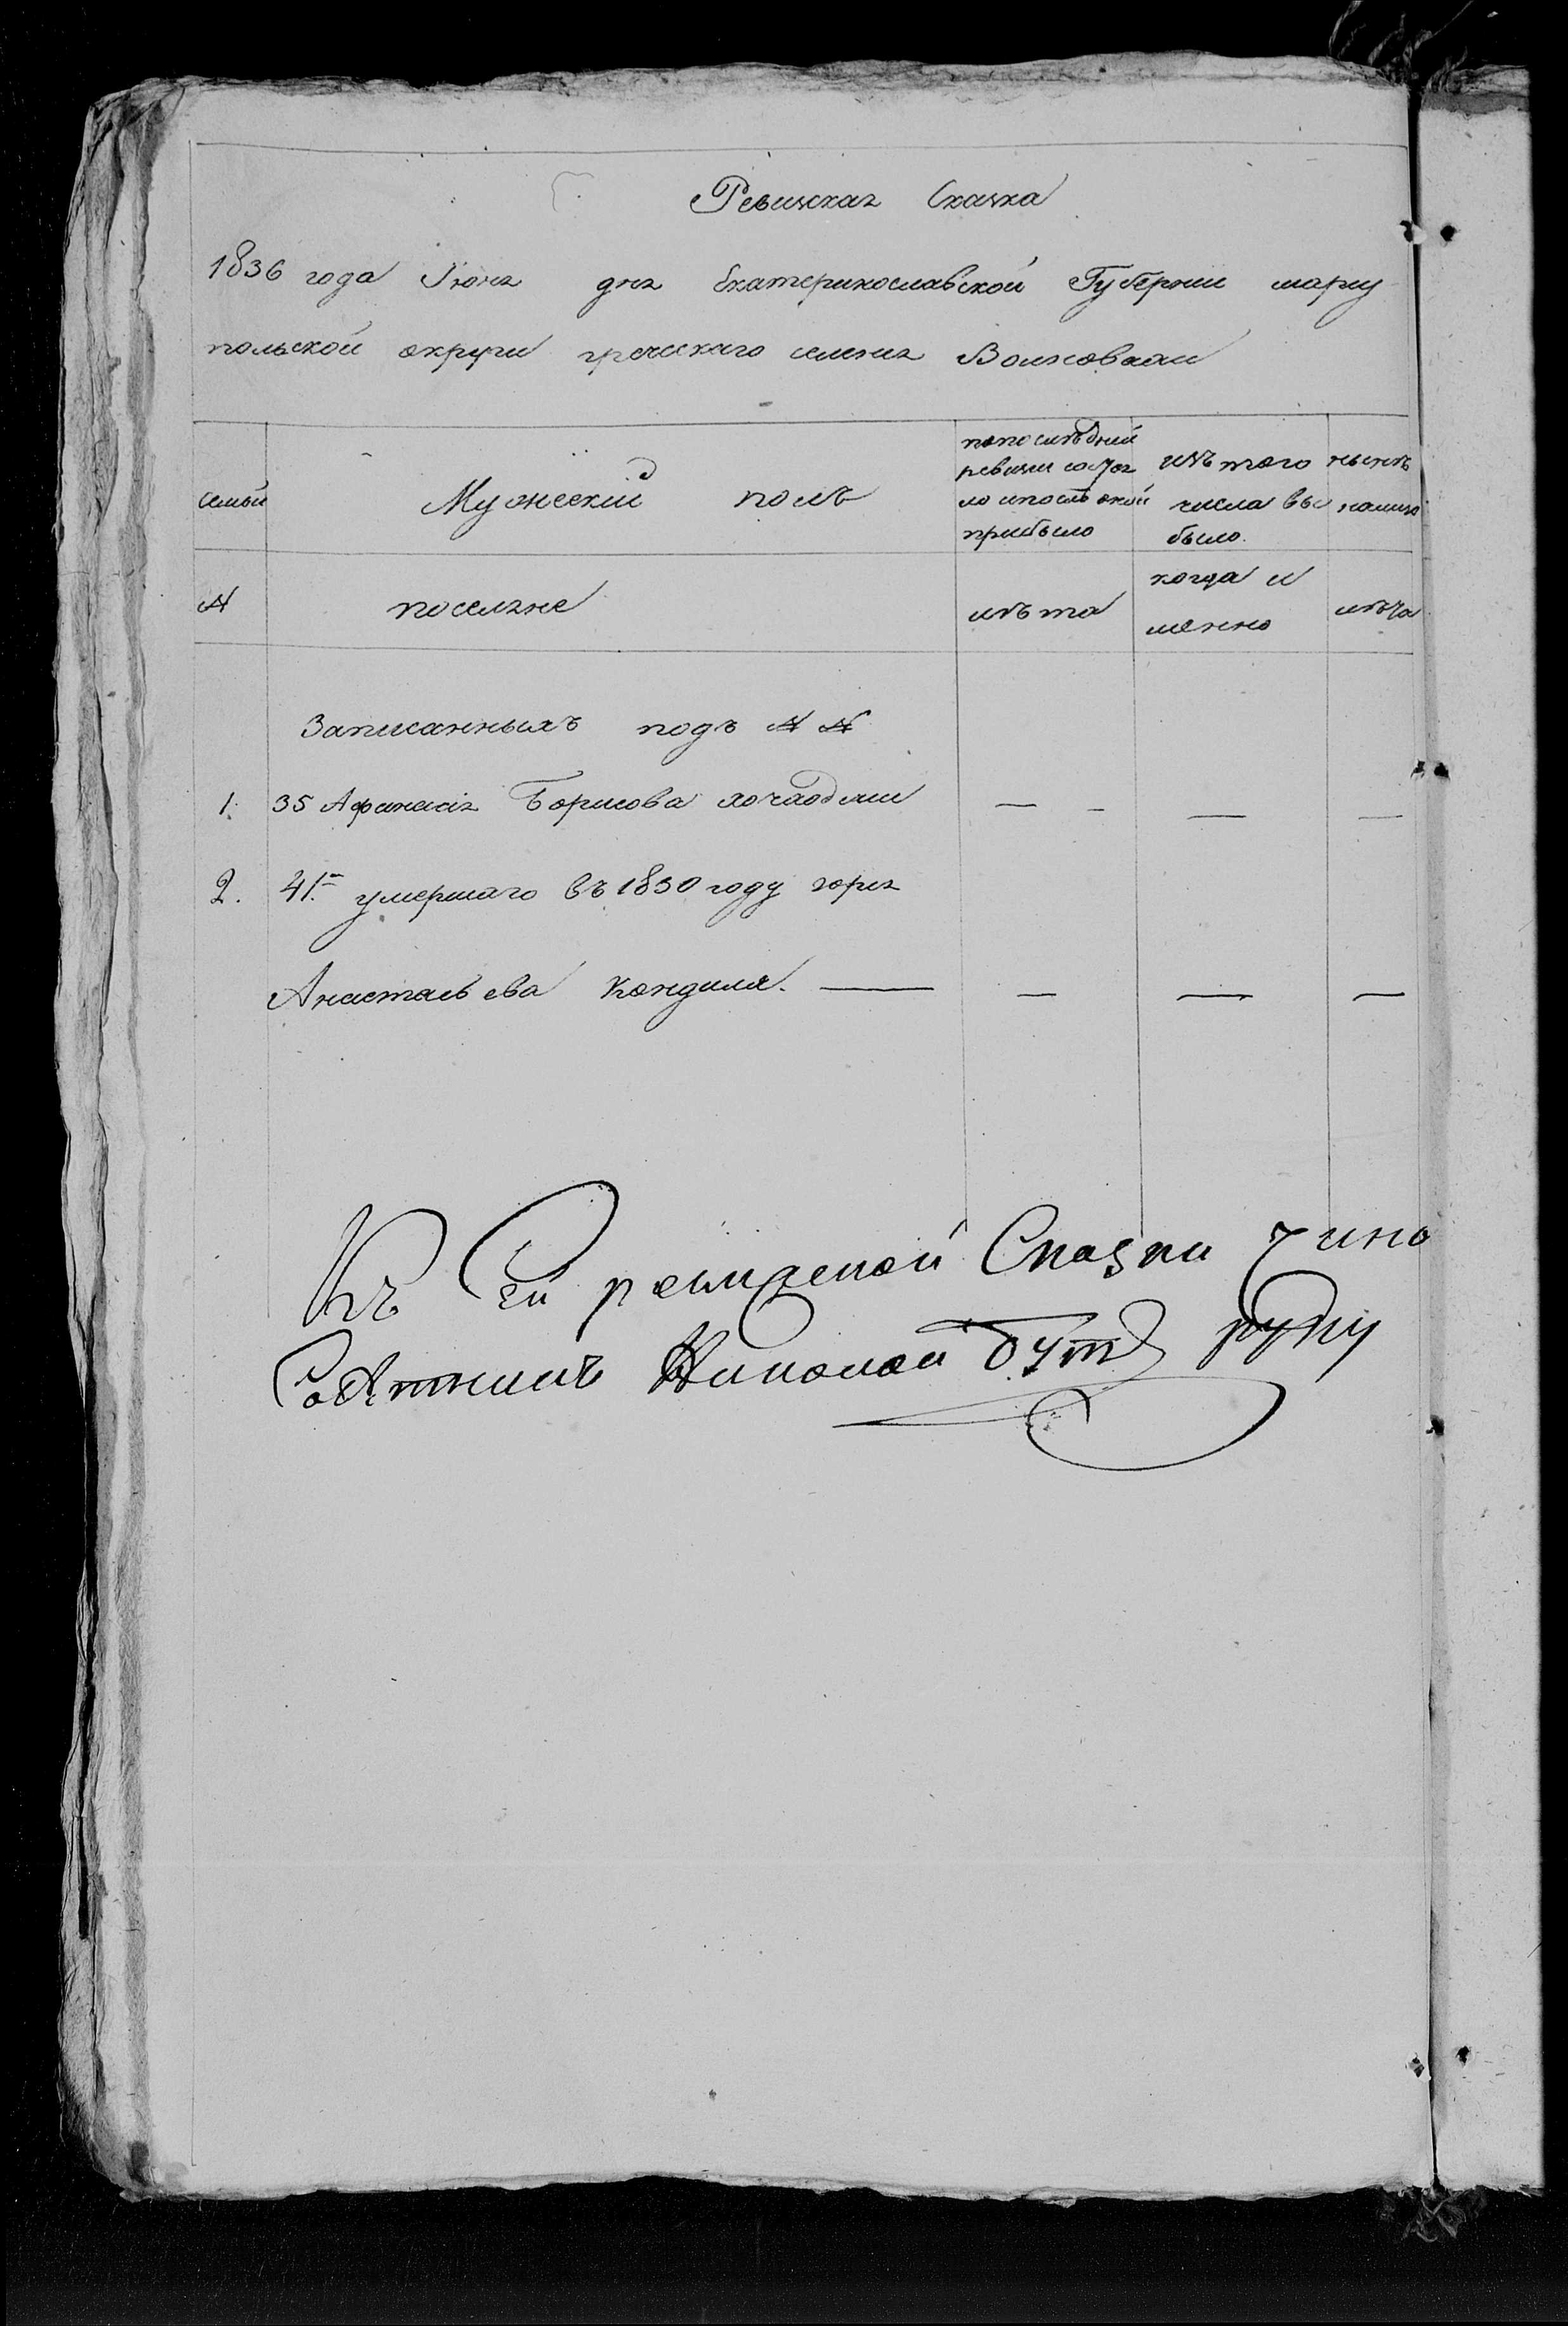 Ревизская Сказка
1836 года Іюня дня Екатеринославской Губернии мариу
польской округи греческаго селения Волновахи
семьи
Мужескій полъ
попослѣдней
ревизии состоя
ло ипослѣ оной
прибыло
изъ того
числа вы
было.
нынѣ
налицо
№
поселяне
лѣта
когда и
менно
лѣта
Записанныхъ подъ № №
1. 35 Афанасія Борисова — — — —
2. 41. умершаго въ 1830 году юрия
Анастасьева Кондиля. — — — —
Къ Сей ревизской Сказки
Сотникъ Николай Бут руку